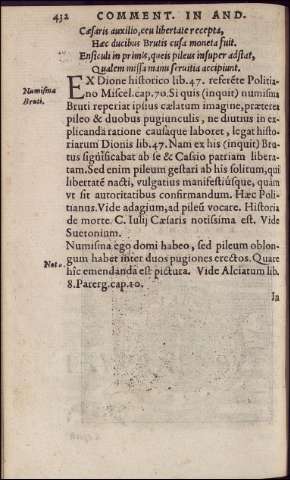 432 COMMENT. IN AND.
Cæsaris auxilio, ceu libertate recepta,
Hæc ducibus Brutis cusa moneta fuit.
Ensiculi in primis, queis pileus insuper adstat,
Qualem missa manu servitia accipiunt.
Numisma
Bruti.
EX Dione historico lib. 47. referẽte Politia-
no Miscel. cap. 70. Si quis (inquit) numisma
Bruti reperiat ipsius cælatum imagine, præterea
pileo & duobus pugiunculis, ne diutius in ex-
plicandâ ratione causaque laboret, legat histo-
riarum Dionis lib. 47. Nam ex his (inquit) Bru-
tus significabat ab se & Cassio patriam libera-
tam. Sed enim pileum gestari ab his solitum, qui
libertatẽ nacti, vulgatius manifestiúsque, quàm
vt sit autoritatibus confirmandum. Hæc Poli-
tianus. Vide adagium, ad pileũ vocare. Historia
de morte. C. Iulij Cæsaris notissima est. Vide
Suetonium.
Numisma ego domi habeo, sed pileum oblon-
Not.
gum habet inter duos pugiones erectos. Quare
hîc emendanda est pictura. Vide Alciatum lib.
8. Parerg. cap. 10.
In